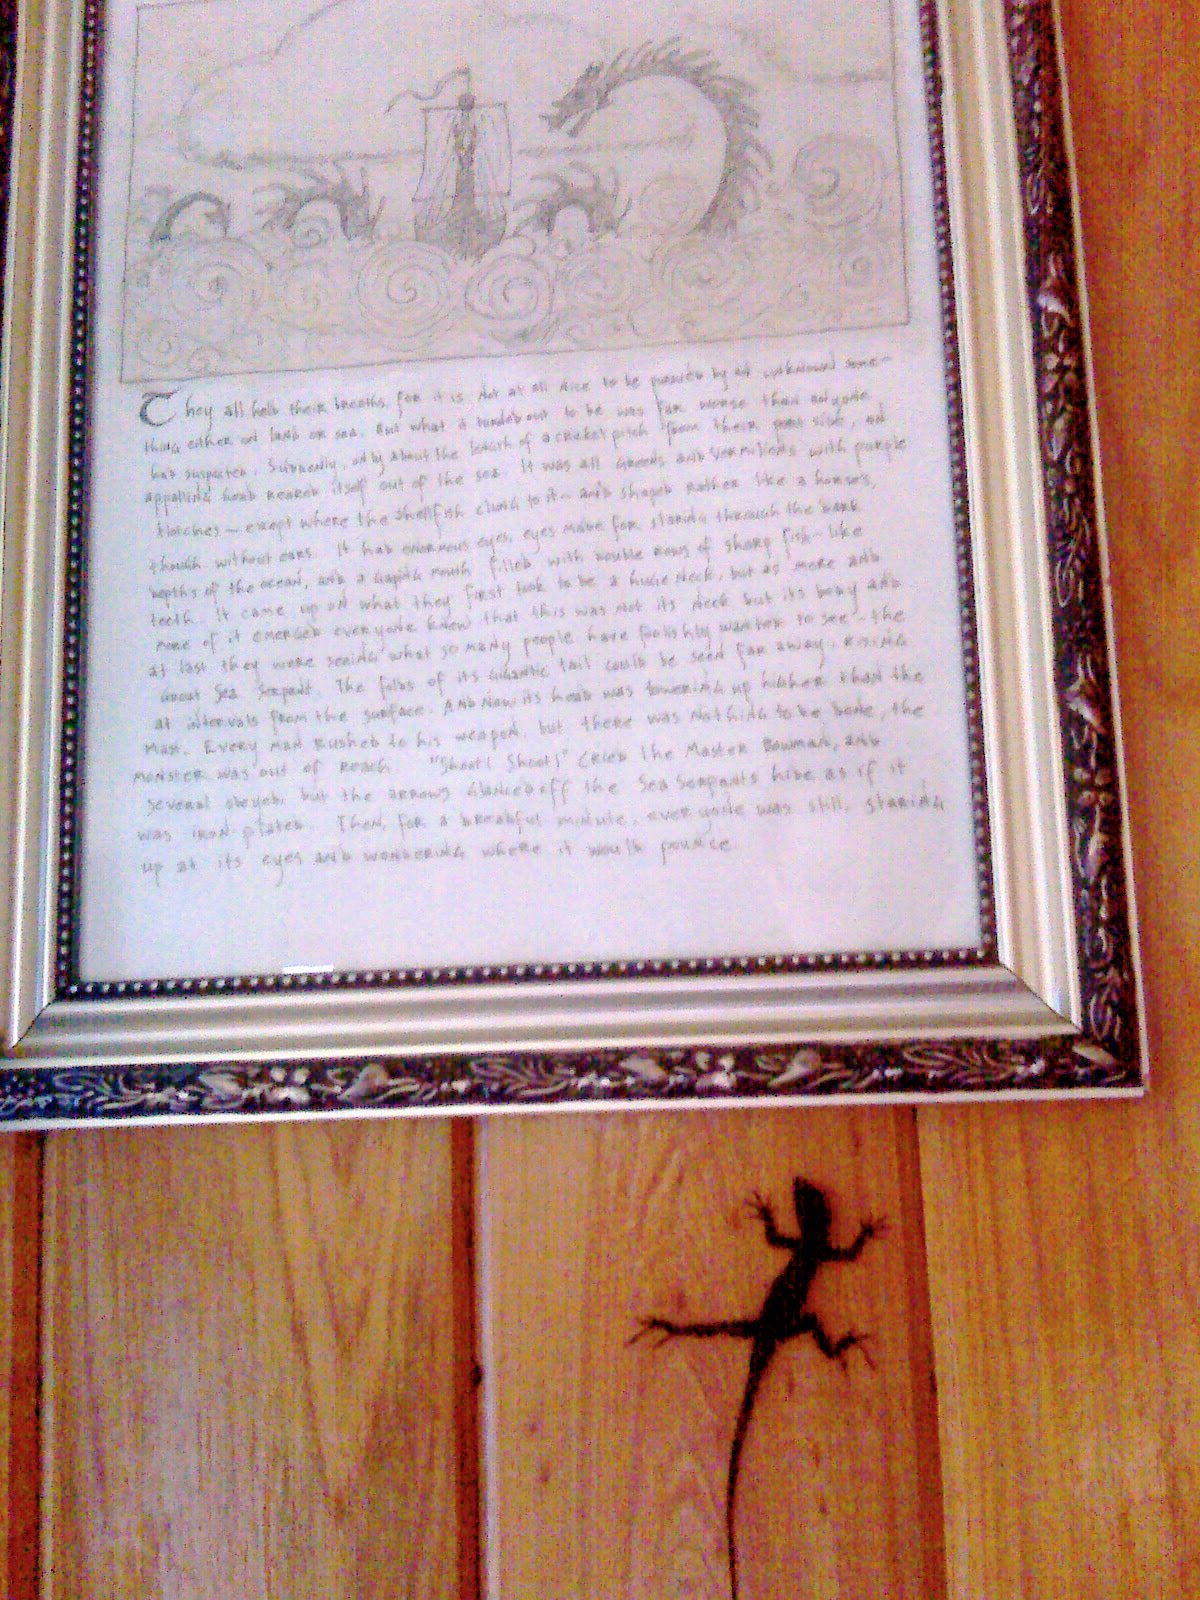 They all held their breaths, for it is not at all nice to be pursued by an unknown some-
thing either on land or sea. But what it turned out to be was far worse than anyone
had suspected. Suddenly, only about the length of a cricket pitch from their port side, an
appalling head reared itself out of the sea. It was all greens and vermilions with purple
blotches - except where the shellfish clung to it - and shaped rather like a horse's,
though without ears. It had enormous eyes, eyes made for staring through the dark
depths of the ocean, and a gaping mouth filled with double rows of sharp fish-like
teeth. It came up on what they first took to be a huge neck, but as more and
more of it emerged everyone knew that this was not its neck but its body and
at last they were seeing what so many people have foolishly wanted to see - the
Great Sea Serpent. The folds of its gigantic tail could be seen far away, rising
at intervals from the surface. And now its head was towering up higher than the
mast. Every man rushed to his weapon, but there was nothing to be done, the
monster was out of reach. "Shoot! Shoot!" cried the Master Bowman, and
several obeyed, but the arrows glanced off the Sea Serpent's hide as if it
was iron-plated. Then, for a dreadful minute, everyone was still, staring
up at its eyes and wondering where it would pounce.